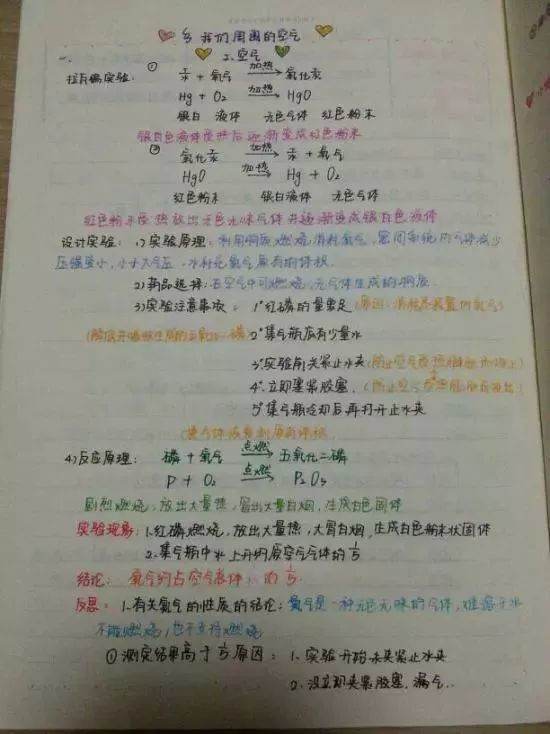 我们周围的空气
空气
一.
拉瓦锡实验: ① 汞 + 氧气 加热 氧化汞
Hg + O₂ 加热 HgO
银白 液体 无色气体 红色粉末
银白色液体受热后逐渐变成红色粉末
② 氧化汞 加热 汞 + 氧气
HgO 加热 Hg + O₂
红色粉末 银白液体 无色气体
红色粉末受热放出无色无味气体并逐渐变成银白色液体
设计实验: 1) 实验原理: 利用物质燃烧消耗氧气, 密闭系统内气体减少
压强变小, 小于大气压, 水补充氧气原有的体积.
2) 药品选择: 在空气中可燃烧, 无气体生成的物质.
3) 实验注意事项: 1° 红磷的量要足 (原因: 消耗尽装置内氧气)
2° 集气瓶底有少量水
3° 实验前夹紧止水夹
4° 立即塞紧胶塞.
5° 集气瓶冷却后再打开止水夹
4) 反应原理: 磷 + 氧气 点燃 五氧化二磷
P + O₂ 点燃 P₂O₅
剧烈燃烧, 放出大量热, 冒出大量白烟, 生成白色固体
实验现象: 1. 红磷燃烧, 放出大量热, 大冒白烟, 生成白色粉末状固体
2. 集气瓶中水上升约原空气气体的1/5
结论: 氧气约占空气体积的1/5
反思: 1. 有关氮气的性质的结论: 氮气是一种无色无味的气体, 难溶于水
不能燃烧, 也不支持燃烧
① 测定结果高于1/5原因: 1. 实验开始未夹紧止水夹
2. 没立即夹紧胶塞, 漏气..